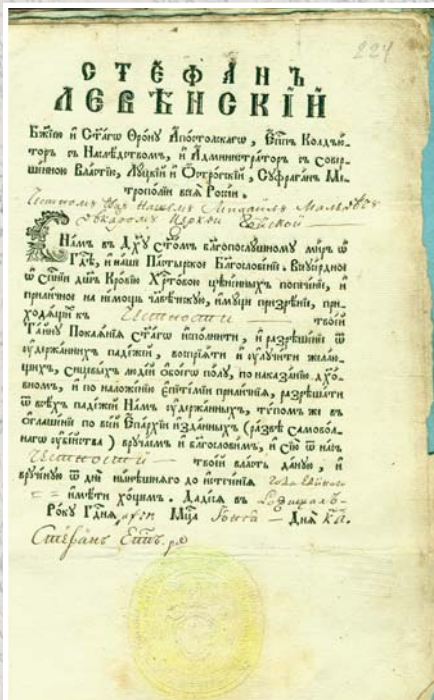 224
СТЕФАНЪ
ЛЕВѢНСКІЙ
Бж҃їю и Ст҃агѡ Ѳрону Апостолскагѡ, Еп҃пъ Колдъю-
торъ съ Наслѣдствомъ, и Администраторъ съ совер-
шенною Властїю, Луцкїй и Острогскїй, Суфраганъ Ми-
трополїи всеѧ Росїи.
Нашемъ Михаилъ
Церкви
Намъ въ Дх҃у ст҃омъ благопослушному миръ ѿ
Гд҃а, и наше Пастырское Благословенїе.
ѿ сп҃енїи дш҃ъ Кровїю Хр҃товою цѣненныхъ попеченїе, и
приличное на немощь чл҃вѣческую, имущи призрѣнїе, при-
ходящїи къ Честности твоей
Тайну Покаянїя Ст҃агѡ исполнити, и разрѣшенїе ѿ
судержанныхъ падежей, воспрїяти и сулучити желаю-
щихъ, сицевыхъ людей обоегѡ полу, по наказанїю дх҃о-
вномъ, и по наложенїю епїтемїи приличнїя, разрѣшати
ѿ всѣхъ падежей Намъ судержанныхъ, тѵпомъ же въ
Оглашенїе по всей Епархїи изданныхъ (развѣ самовол-
нагѡ субїйства) вручаемъ и благословимъ, и сїю ѿ насъ
Честностей твоей власть даную, и
врученую ѿ дне нынѣшнягѡ до истченїя года
имѣти хощемъ. Дадеся въ
Року Гд҃ня Мц҃а Дня к҃а.
Стефанъ Еп҃пъ.